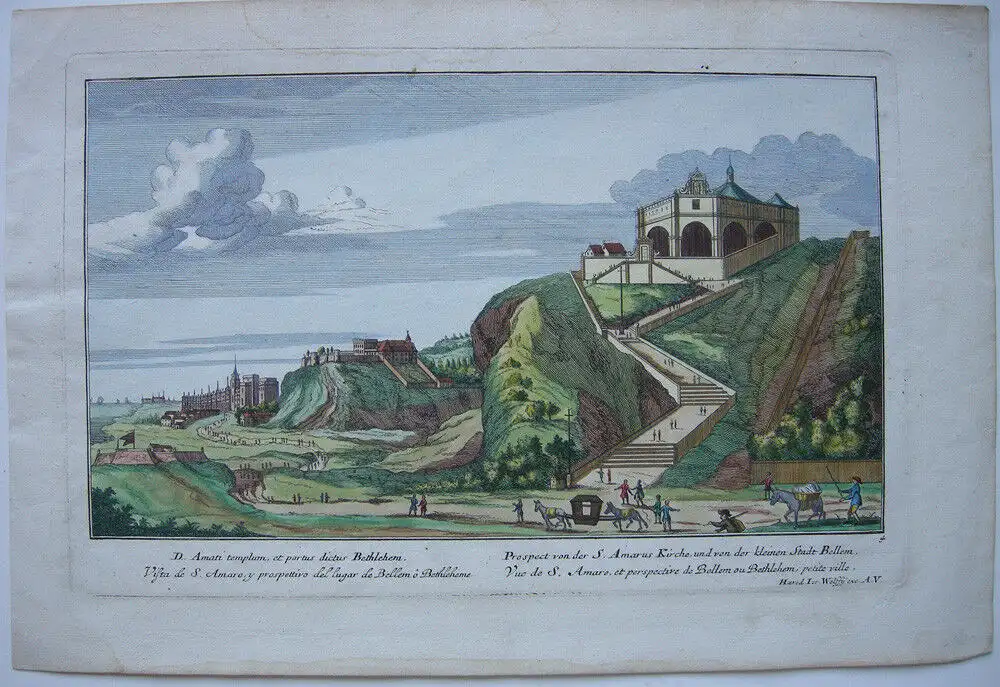 D. Amati templum, et portus dictus Bethlehem.
Vista de S. Amaro, y prospettiro del lugar de Bellem ô Bethleheme.
Prospect von der S. Amarus Kirche, und von der kleinen Stadt Bellem.
Vue de S. Amaro, et perspective de Bellem ou Bethlehem, petite ville.
Hæred. Ier. Wolffÿ exc. A.V.